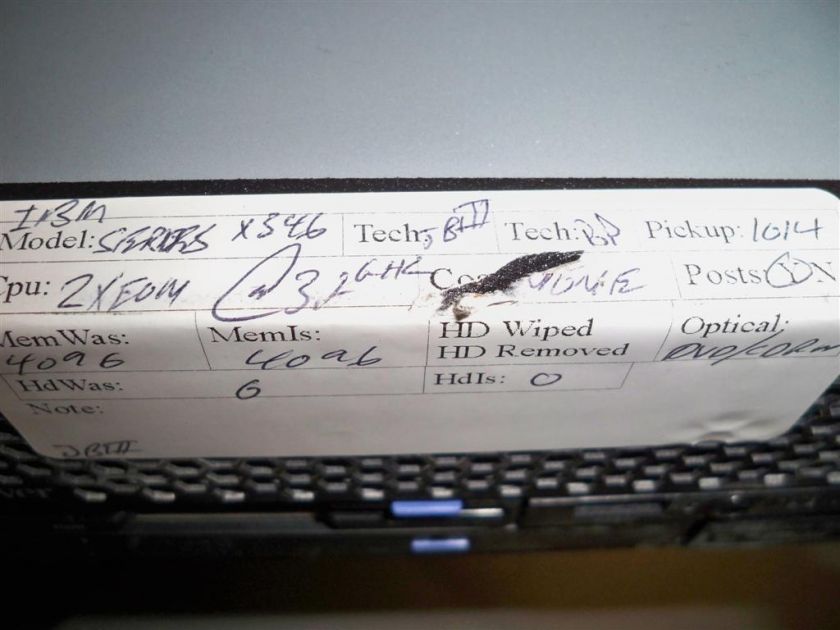 IBM
Model: SERIES X346 Tech: JBIII Tech: BP Pickup: 1014
Cpu: 2 XEON @ 3.2 GHZ NONE Posts: Y N
MemWas: MemIs: HD Wiped Optical:
4096 4096 HD Removed DVD/CDRM
HdWas: 6 HdIs: 0
Note:
JBIII